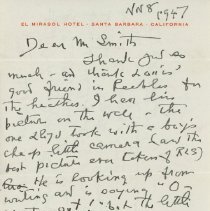 Nov 8 1947
EL MIRASOL HOTEL - SANTA BARBARA - CALIFORNIA
Dear Mr Smith
Thank you so
much - and thank Louis'
good friend in Peebles for
the heather. I have his
picture on the wall - the
one Lloyd took with a boy's
cheap little camera (and the
best picture ever taken of RLS)
He is looking up from
writing and is saying "O
but the little